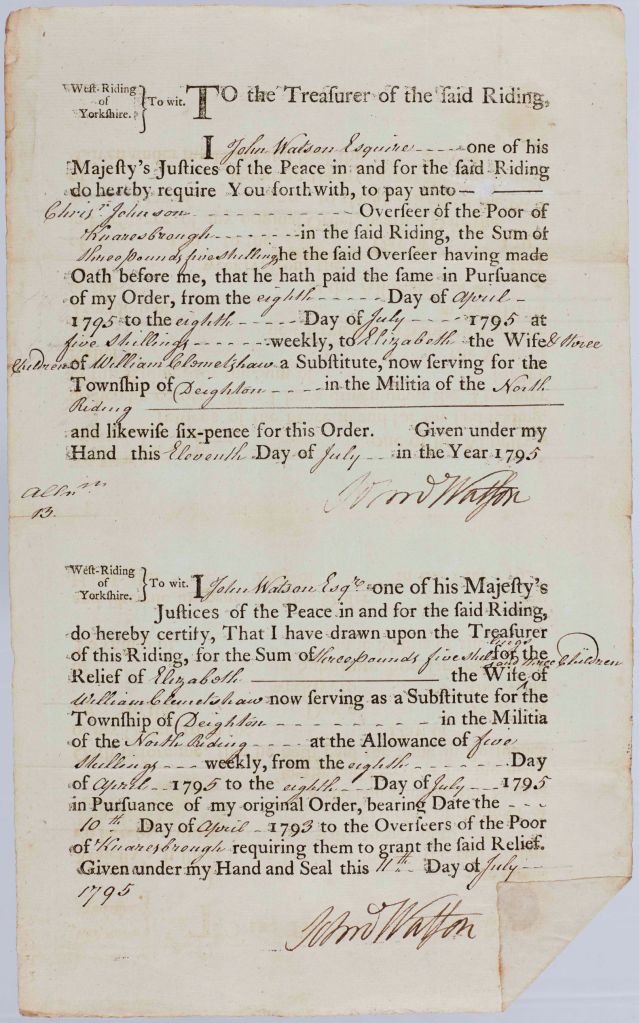 West-Riding
of
Yorkshire. } To wit. TO the Treaſurer of the ſaid Riding,
I John Watson Esquire - - - - one of his
Majeſty's Juſtices of the Peace in and for the ſaid Riding
do hereby require You forthwith, to pay unto — ——
Chrisr. Johnson - - - - - - - - - Overſeer of the Poor of
Knaresbrough - - - - - - - in the ſaid Riding, the Sum of
three pounds five shillings he the ſaid Overſeer having made
Oath before me, that he hath paid the ſame in Purſuance
of my Order, from the eighth - - - - - Day of April -
1795 to the eighth - - - - - Day of July - - - - 1795 at
five shillings - - - - - - weekly, to Elizabeth the Wife & three
Children of William Clometshaw a Subſtitute, now ſerving for the
Townſhip of Deighton - - - - in the Militia of the North
Riding ——————
and likewiſe ſix-pence for this Order. Given under my
Hand this Eleventh Day of July - - in the Year 1795
Watson
13.
West-Riding
of
Yorkshire. } To wit. I John Watson Esqr. one of his Majeſty's
Juſtices of the Peace in and for the ſaid Riding,
do hereby certify, That I have drawn upon the Treaſurer
of this Riding, for the Sum of three pounds five shillings for the
Relief of Elizabeth —————— the Wife and three Children of
William Clometshaw now ſerving as a Subſtitute for the
Townſhip of Deighton - - - - - - - - - in the Militia
of the North Riding - - - - at the Allowance of five
shillings - - - weekly, from the eighth - - - - - - Day
of April - 1795 to the eighth - - Day of July - - 1795
in Purſuance of my original Order, bearing Date the - - -
10th Day of April - 1793 to the Overſeers of the Poor
of Knaresbrough requiring them to grant the ſaid Relief.
Given under my Hand and Seal this 11th - Day of July -
1795
Watson